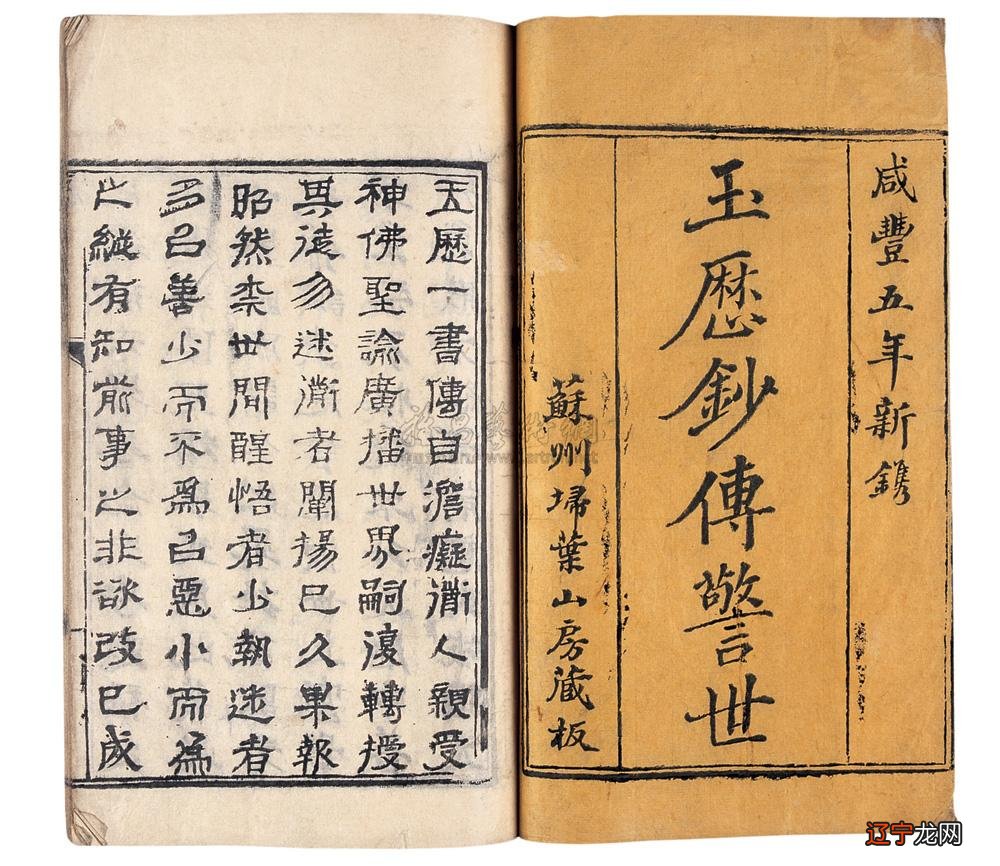 咸豐五年新鐫
玉厯鈔傳警世
蘇州埽葉山房藏板
玉厯一書傳自澹癡衟人親受
神佛聖諭廣播世界嗣復轉授
其徒勿迷衟者闡揚已久果報
昭然柰世間醒悟者少執迷者
多㠯善少而不爲㠯惡小而爲
之縱有知前事之非欲改已成
辽宁龙网